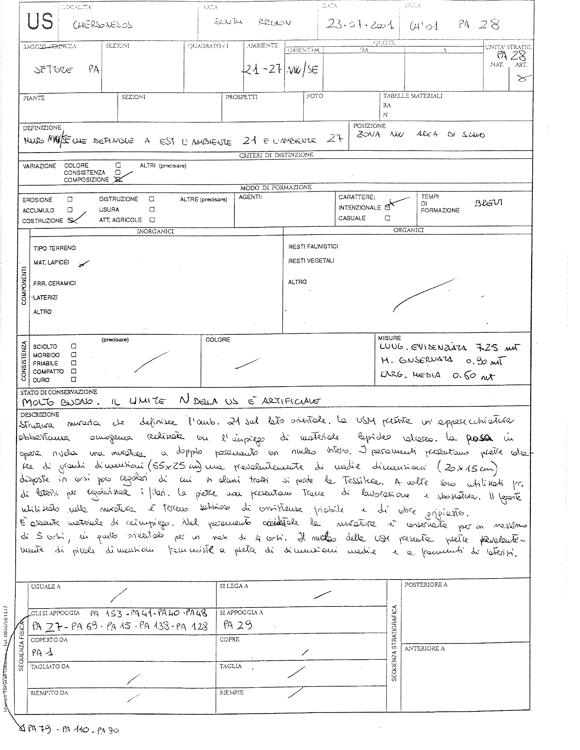 US
LOCALITA'
CHERSONESOS
AREA
SOUTH REGION
DATA
23.07.2001
SIGLA
CH'01 PA 28
SAGGIO/TRINCEA
SETTORE PA
SEZIONI
QUADRATO/I
AMBIENTE
21-27
ORIENTAM.
NW/SE
QUOTE
DA
A
UNITA' STRATIG.
PA 28
NAT. ART.
PIANTE
SEZIONI
PROSPETTI
FOTO
TABELLE MATERIALI
RA
N
DEFINIZIONE
MURO NW/SE CHE DEFINISCE A EST L'AMBIENTE 21 E L'AMBIENTE 27
POSIZIONE
ZONA NW AREA DI SCAVO
CRITERI DI DISTINZIONE
VARIAZIONE COLORE ALTRI (precisare)
CONSISTENZA
COMPOSIZIONE
MODO DI FORMAZIONE
EROSIONE DISTRUZIONE ALTRE (precisare)
ACCUMULO USURA
COSTRUZIONE ATT. AGRICOLE
AGENTI:
CARATTERE:
INTENZIONALE
CASUALE
TEMPI
DI
FORMAZIONE
BREVI
COMPONENTI
INORGANICI
TIPO TERRENO
MAT. LAPIDEI
FRR. CERAMICI
LATERIZI
ALTRO
ORGANICI
RESTI FAUNISTICI
RESTI VEGETALI
ALTRO
CONSISTENZA
SCIOLTO
MORBIDO
FRIABILE
COMPATTO
DURO
(precisare)
COLORE
MISURE
LUNG. EVIDENZIATA 7.25 mt
H. CONSERVATA 0.90 mt
LARG. MEDIA 0.60 mt
STATO DI CONSERVAZIONE
MOLTO BUONO. IL LIMITE N DELLA US E' ARTIFICIALE
DESCRIZIONE
Struttura muraria che definisce l'amb. 21 sul lato orientale. La USM presenta un'apparecchiatura
abbastanza omogenea realizzata con l'impiego di materiale lapideo calcareo. La posa in
opera rivela una muratura a doppio paramento con nucleo interno. I paramenti presentano pietre
di grandi dimensioni (55x25 cm) prevalentemente di medie dimensioni (20x15 cm)
disposte in corsi regolari di cui in alcuni tratti si perde la tessitura. A volte sono utilizzati
di laterizi per regolarizzare i piani. Le pietre non presentano tracce di lavorazione e sbozzatura. Il legante
utilizzato nella muratura è terreno sabbioso di consistenza friabile di colore grigiastro.
È assente materiale di reimpiego. Nel paramento occidentale la muratura è conservata per un massimo
di 5 corsi, in quello orientale per un max di 4 corsi. Il nucleo della USM presenta pietre prevalente-
mente di piccole dimensioni frammiste a pietre di dimensioni medie e a frammenti di laterizi.
SEQUENZA FISICA
UGUALE A
SI LEGA A
GLI SI APPOGGIA PA 153-PA 41-PA 40-PA 48
PA 27-PA 69-PA 15-PA 138-PA 128
SI APPOGGIA A
PA 29
COPERTO DA
PA 1
COPRE
TAGLIATO DA
TAGLIA
RIEMPITO DA
RIEMPIE
SEQUENZA STRATIGRAFICA
POSTERIORE A
ANTERIORE A
PA 79 - PA 110 - PA 80